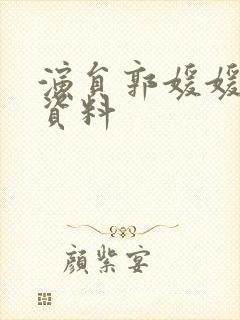 演員郭媛媛
資料
顏紫宴